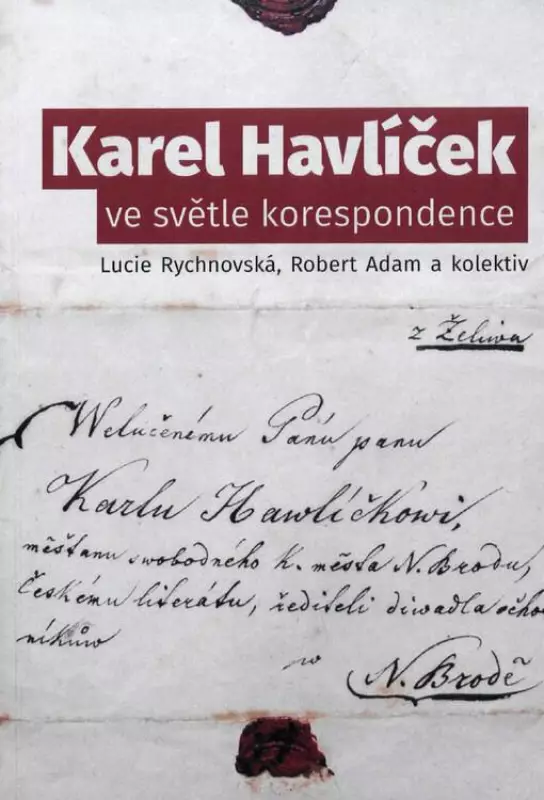 Karel Havlíček
ve světle korespondence
Lucie Rychnovská, Robert Adam a kolektiv
z Želiwa
Welučenému Pánú panu
Karlu Hawlíčkowi,
měšťanu swobodného k. města N. Brodu,
českému literátu, řediteli diwadla ocho
níkůw
w
N. Brodě